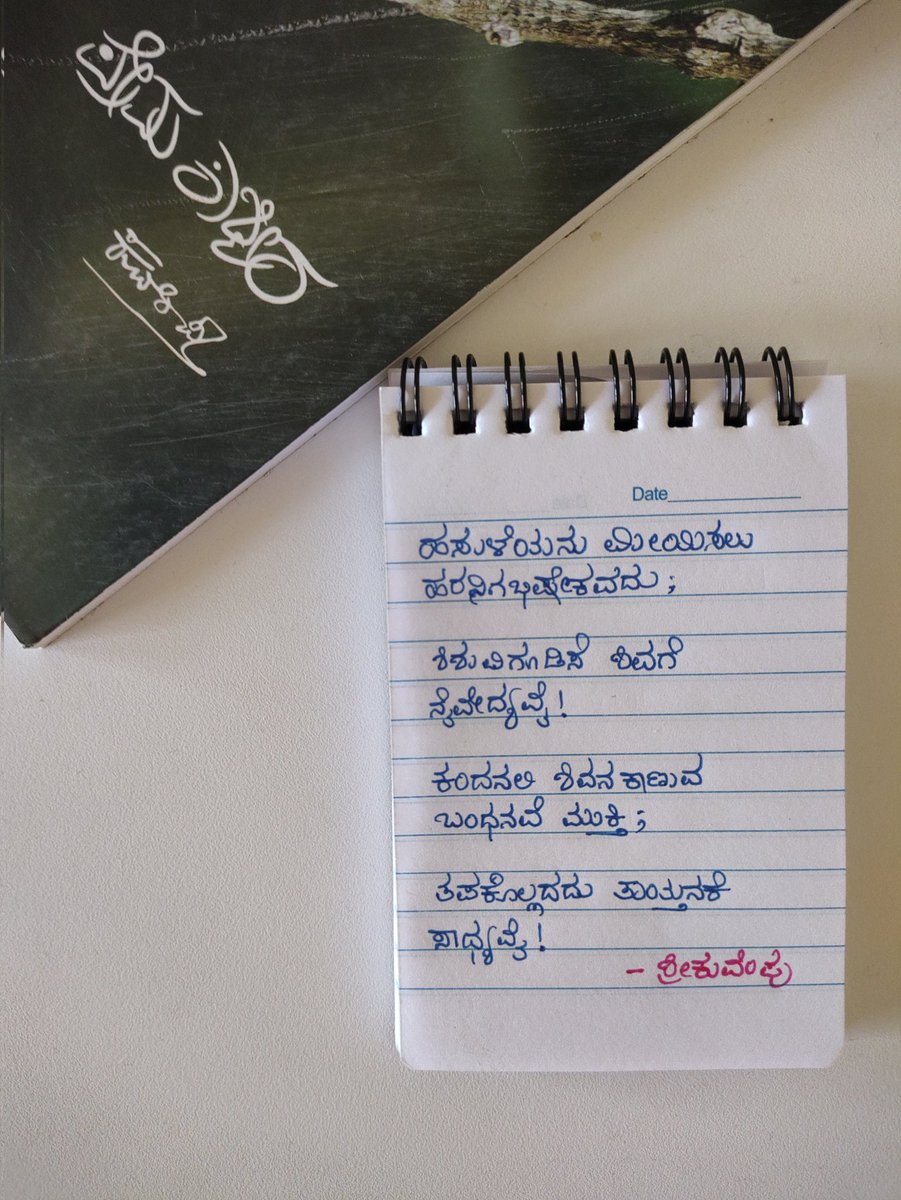 ಪ್ರೇಮ ಕಾಶ್ಮೀರ
ಕುವೆಂಪು
Date
ಹಸುಳೆಯನು ಮೀಯಿಸಲು
ಹರನಿಗಭಿಷೇಕವದು ;
ಶಿಶುವಿಗೂಡಿಸೆ ಶಿವಗೆ
ನೈವೇದ್ಯವೈ !
ಕಂದನಲಿ ಶಿವನ ಕಾಣುವ
ಬಂಧನವೆ ಮುಕ್ತಿ ;
ತಪಕೊಲ್ಲದದು ತಾಯ್ತನಕೆ
ಸಾಧ್ಯವೈ !
- ಶ್ರೀಕುವೆಂಪು